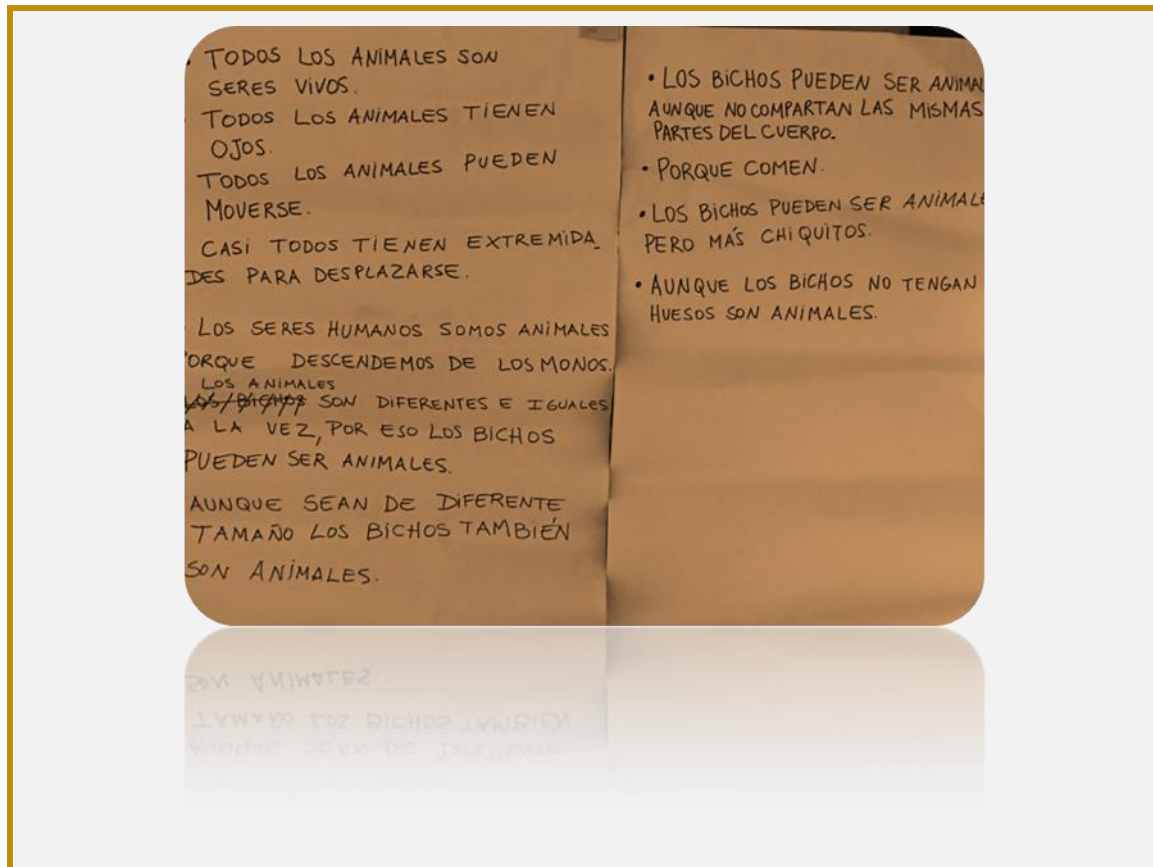 • TODOS LOS ANIMALES SON
SERES VIVOS.
TODOS LOS ANIMALES TIENEN
OJOS.
TODOS LOS ANIMALES PUEDEN
MOVERSE.
CASI TODOS TIENEN EXTREMIDA_
DES PARA DESPLAZARSE.
• LOS SERES HUMANOS SOMOS ANIMALES
PORQUE DESCENDEMOS DE LOS MONOS.
LOS ANIMALES
LOS BICHOS SON DIFERENTES E IGUALES
A LA VEZ, POR ESO LOS BICHOS
PUEDEN SER ANIMALES.
AUNQUE SEAN DE DIFERENTE
TAMAÑO LOS BICHOS TAMBIÉN
SON ANIMALES.
• LOS BICHOS PUEDEN SER ANIMAL
AUNQUE NO COMPARTAN LAS MISMAS
PARTES DEL CUERPO.
• PORQUE COMEN.
• LOS BICHOS PUEDEN SER ANIMALE
PERO MÁS CHIQUITOS.
• AUNQUE LOS BICHOS NO TENGAN
HUESOS SON ANIMALES.